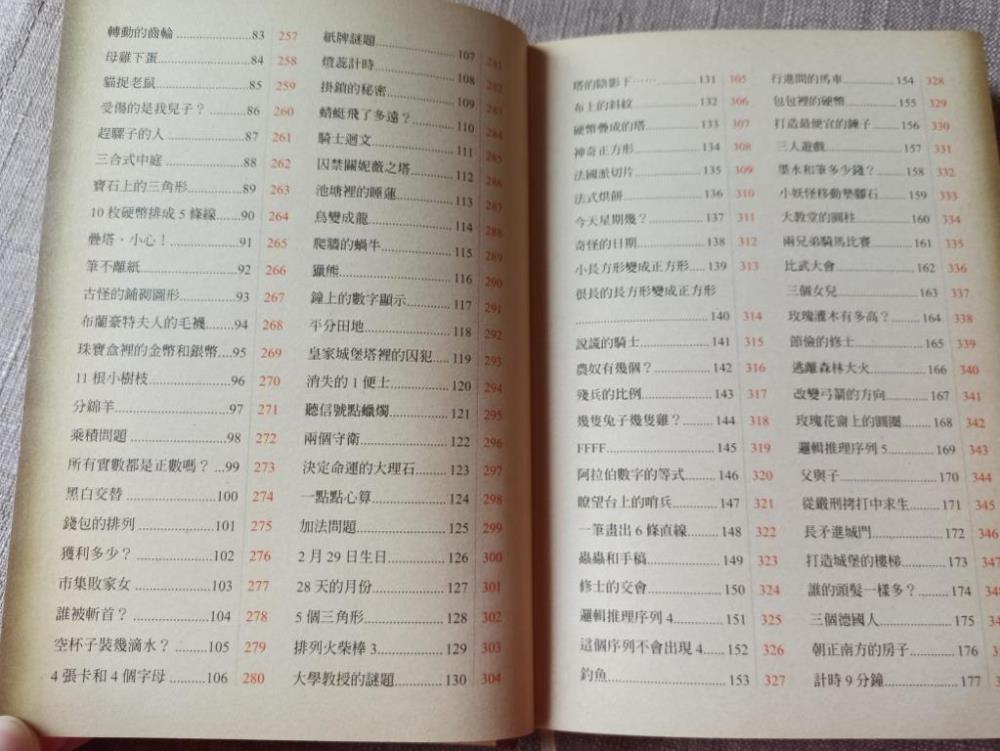 轉動的齒輪 ................83 257
母雞下蛋....................84 258
貓捉老鼠....................85 259
受傷的是我兒子？..........86 260
趕騾子的人 ................87 261
三合式中庭..................88 262
寶石上的三角形............89 263
10 枚硬幣排成 5 條線......90 264
疊塔，小心！................91 265
筆不離紙....................92 266
古怪的鋪砌圖形............93 267
布蘭豪特夫人的毛襪......94 268
珠寶盒裡的金幣和銀幣....95 269
11 根小樹枝 ................96 270
分綿羊......................97 271
乘積問題....................98 272
所有實數都是正數嗎？...99 273
黑白交替 ..................100 274
錢包的排列 ................101 275
獲利多少？................102 276
市集敗家女 ................103 277
誰被斬首？................104 278
空杯子裝幾滴水？........105 279
4 張卡和 4 個字母 ........106 280
紙牌謎題....................107 281
燈蕊計時....................108 282
掛鎖的秘密..................109 283
蜻蜓飛了多遠？............110 284
騎士迴文....................111 285
囚禁關妮薇之塔............112 286
池塘裡的睡蓮..............113 287
鳥變成龍....................114 288
爬牆的蝸牛..................115 289
獵熊........................116 290
鐘上的數字顯示............117 291
平分田地....................118 292
皇家城堡塔裡的囚犯......119 293
消失的 1 便士..............120 294
聽信號點蠟燭..............121 295
兩個守衛....................122 296
決定命運的大理石........123 297
一點點心算..................124 298
加法問題....................125 299
2 月 29 日生日............126 300
28 天的月份................127 301
5 個三角形..................128 302
排列火柴棒 3..............129 303
大學教授的謎題............130 304
塔的陰影下⋯⋯............131 305
布上的斜紋..................132 306
硬幣疊成的塔..............133 307
神奇正方形..................134 308
法國派切片..................135 309
法式烘餅....................136 310
今天星期幾？..............137 311
奇怪的日期..................138 312
小長方形變成正方形......139 313
很長的長方形變成正方形
..............................140 314
說謊的騎士..................141 315
農奴有幾個？..............142 316
殘兵的比例..................143 317
幾隻兔子幾隻雞？........144 318
FFFF........................145 319
阿拉伯數字的等式........146 320
瞭望台上的哨兵............147 321
一筆畫出 6 條直線........148 322
蟲蟲和手稿..................149 323
修士的交會..................150 324
邏輯推理序列 4............151 325
這個序列不會出現 4......152 326
釣魚........................153 327
行進間的馬車..............154 328
包包裡的硬幣..............155 329
打造最便宜的鍊子........156 330
三人遊戲....................157 331
墨水和筆多少錢？........158 332
小妖怪移動墊腳石........159 333
大教堂的圓柱..............160 334
兩兄弟騎馬比賽............161 335
比武大會....................162 336
三個女兒....................163 337
玫瑰灌木有多高？........164 338
節倫的修士..................165 339
逃離森林大火..............166 340
改變弓箭的方向............167 341
玫瑰花窗上的圓圈........168 342
邏輯推理序列 5............169 343
父與子......................170 344
從嚴刑拷打中求生........171 345
長矛進城門..................172 346
打造城堡的樓梯............173 347
誰的頭髮一樣多？........174
三個德國人..................175
朝正南方的房子............176
計時 9 分鐘................177